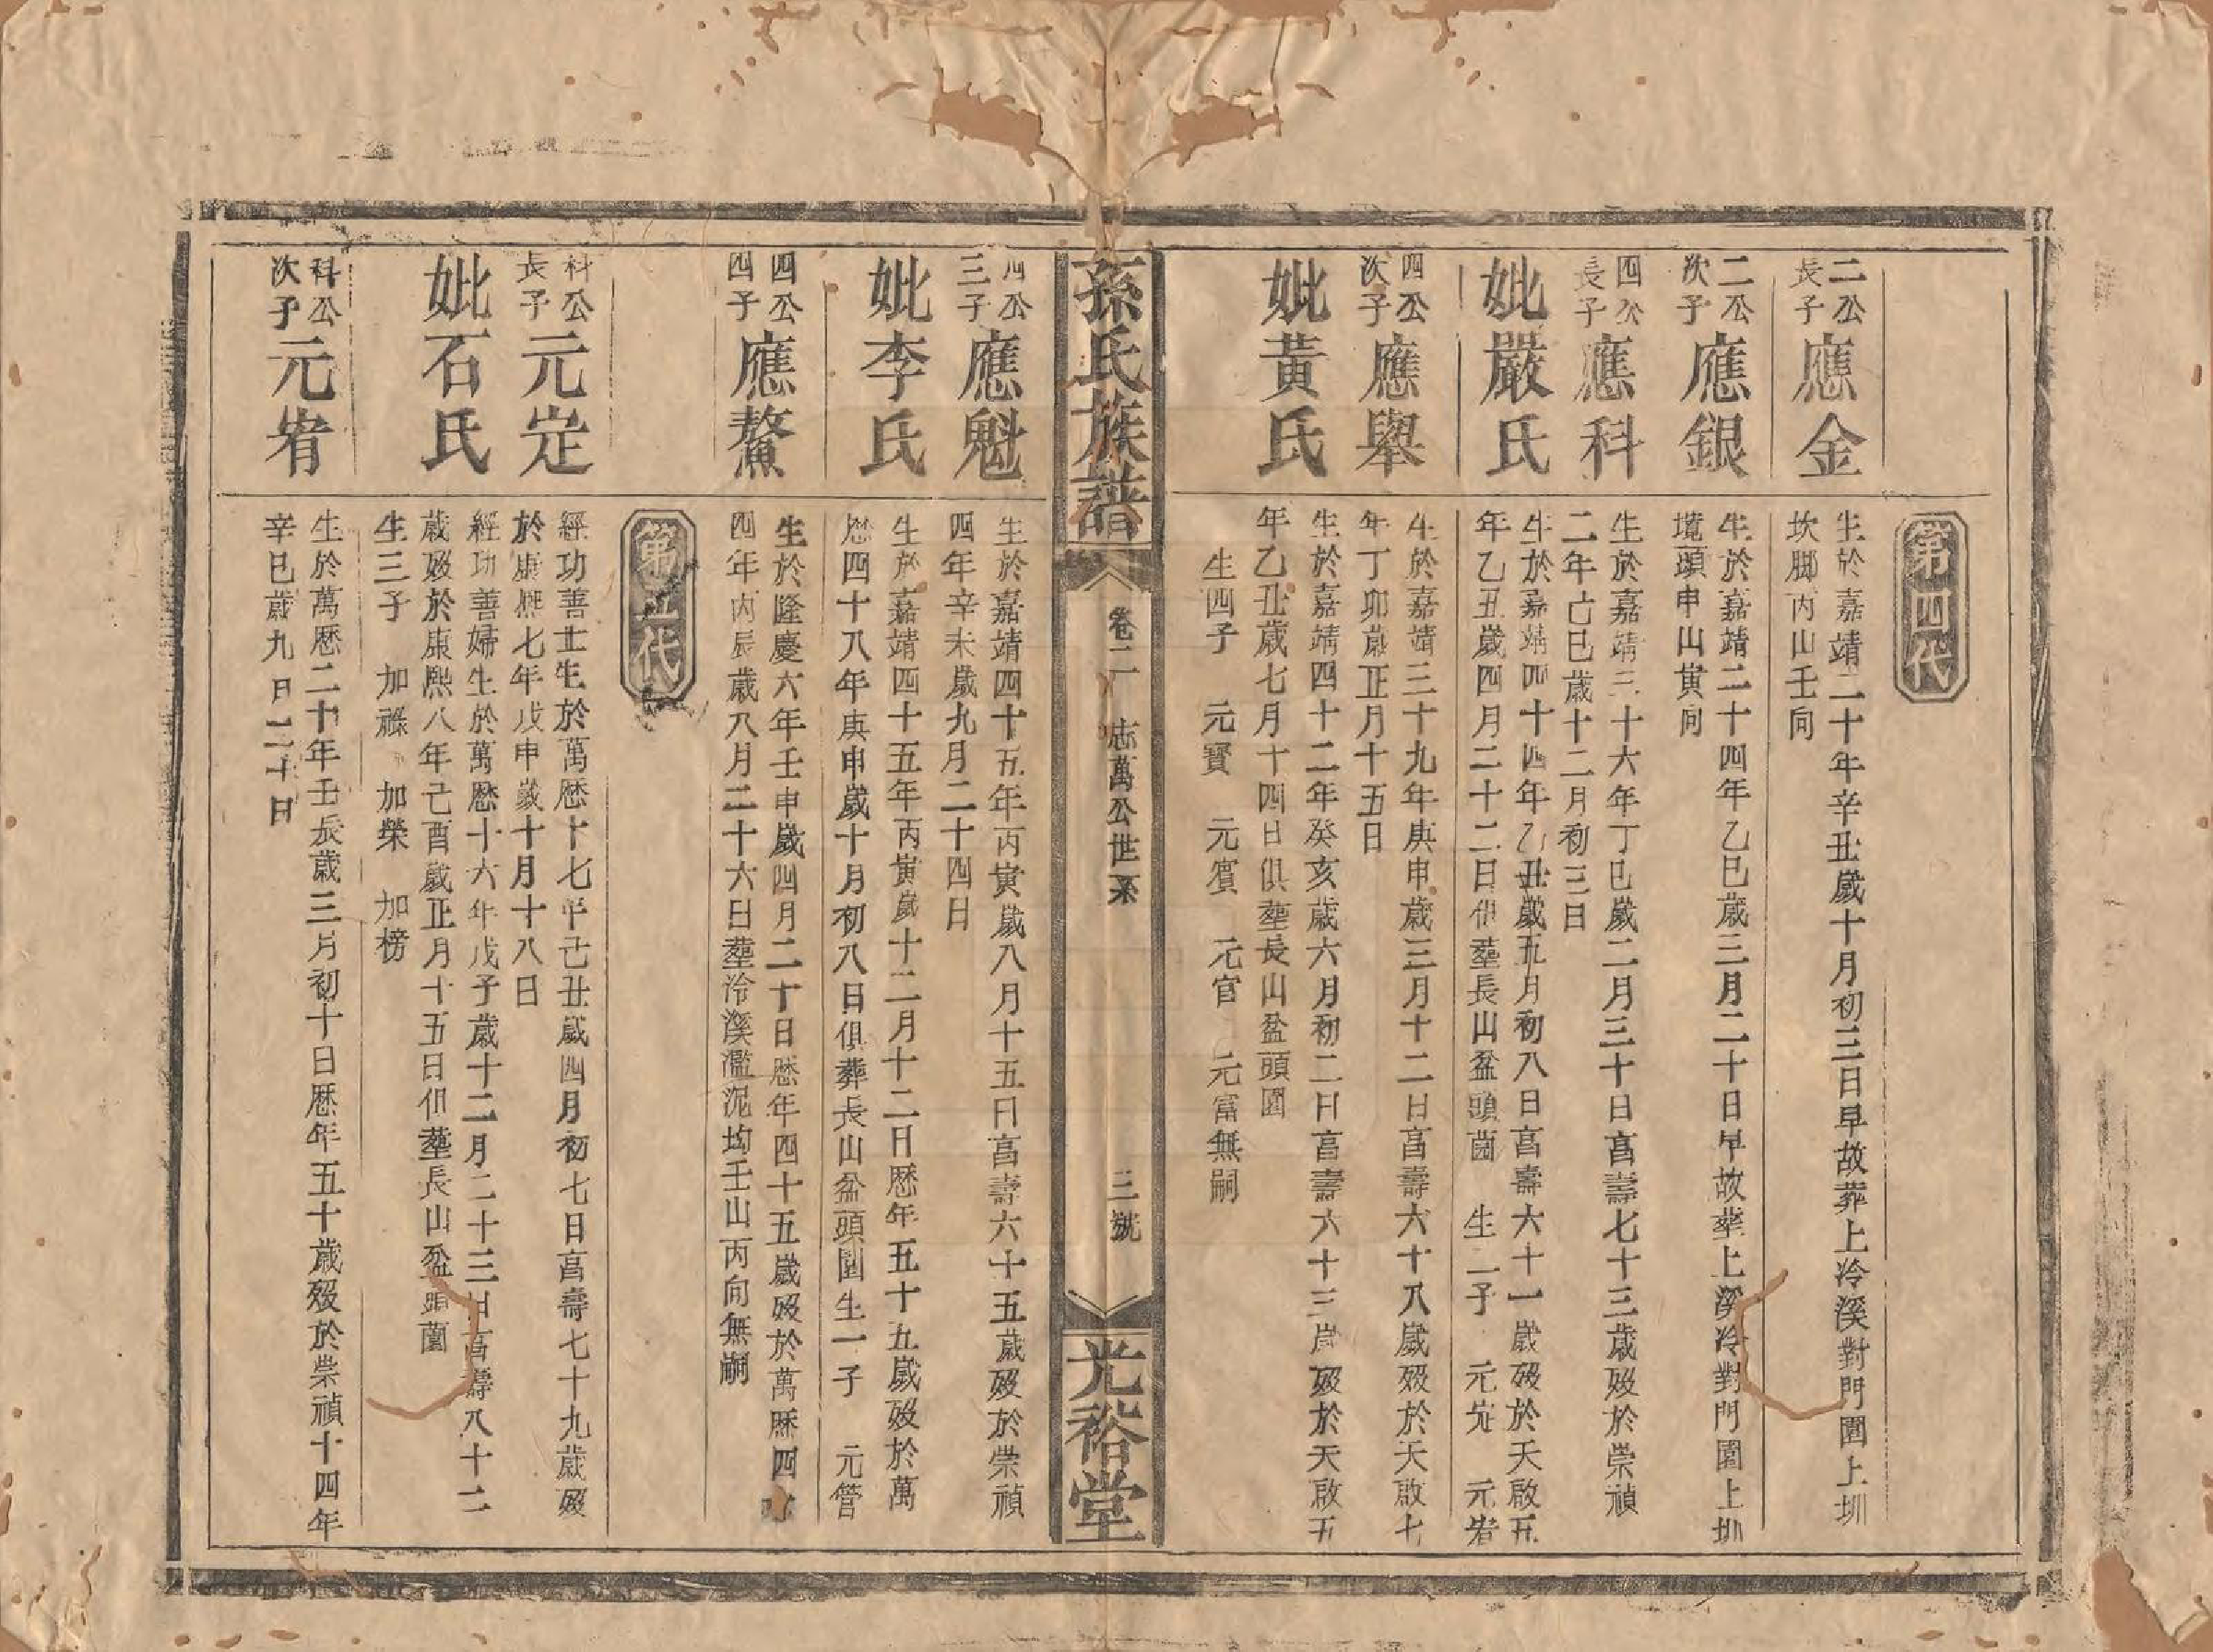 第四代
二公長子應金
生於嘉靖二十年辛丑歲十月初三日早故葬上冷溪對門園上圳
坎脚丙山壬向
二公次子應銀
生於嘉靖二十四年乙巳歲三月二十日早故葬上溪冷對門園上圳
墈頭申山寅向
四公長子應科
生於嘉靖三十六年丁巳歲二月三十日亯壽七十三歲歿於崇禎
二年己巳歲十二月初三日
妣嚴氏
生於嘉靖四十四年乙丑歲五月初八日亯壽六十一歲歿於天啟五
年乙丑歲四月二十二日俱塟長山盆頭園 生二子 元定 元宥
四公次子應舉
生於嘉靖三十九年庚申歲三月十二日亯壽六十八歲歿於天啟七
年丁卯歲正月十五日
妣黃氏
生於嘉靖四十二年癸亥歲六月初二日亯壽六十三歲歿於天啟五
年乙丑歲七月十四日俱塟長山盆頭園
生四子 元寶 元賓 元官 元富無嗣
孫氏族譜 卷二 志萬公世系 三號 光裕堂
四公三子應魁
生於嘉靖四十五年丙寅歲八月十五日亯壽六十五歲歿於崇禎
四年辛未歲九月二十四日
妣李氏
生於嘉靖四十五年丙寅歲十二月十二日歷年五十五歲歿於萬
歷四十八年庚申歲十月初八日俱葬長山盆頭園生一子 元管
四公四子應鰲
生於隆慶六年壬申歲四月二十日歷年四十五歲歿於萬曆四十
四年丙辰歲八月二十六日塟冷溪濫泥坳壬山丙向無嗣
第五代
科公長子元定
經功善士生於萬歷十七年己丑歲四月初七日亯壽七十九歲歿
於康熙七年戊申歲十月十八日
妣石氏
經功善婦生於萬歷十六年戊子歲十二月二十三日亯壽八十二
歲歿於康熙八年己酉歲正月十五日俱塟長山盆頭薗
生三子 加祿 加榮 加榜
科公次子元宥
生於萬歷二十年壬辰歲三月初十日歷年五十歲歿於崇禎十四年
辛巳歲九月二十日